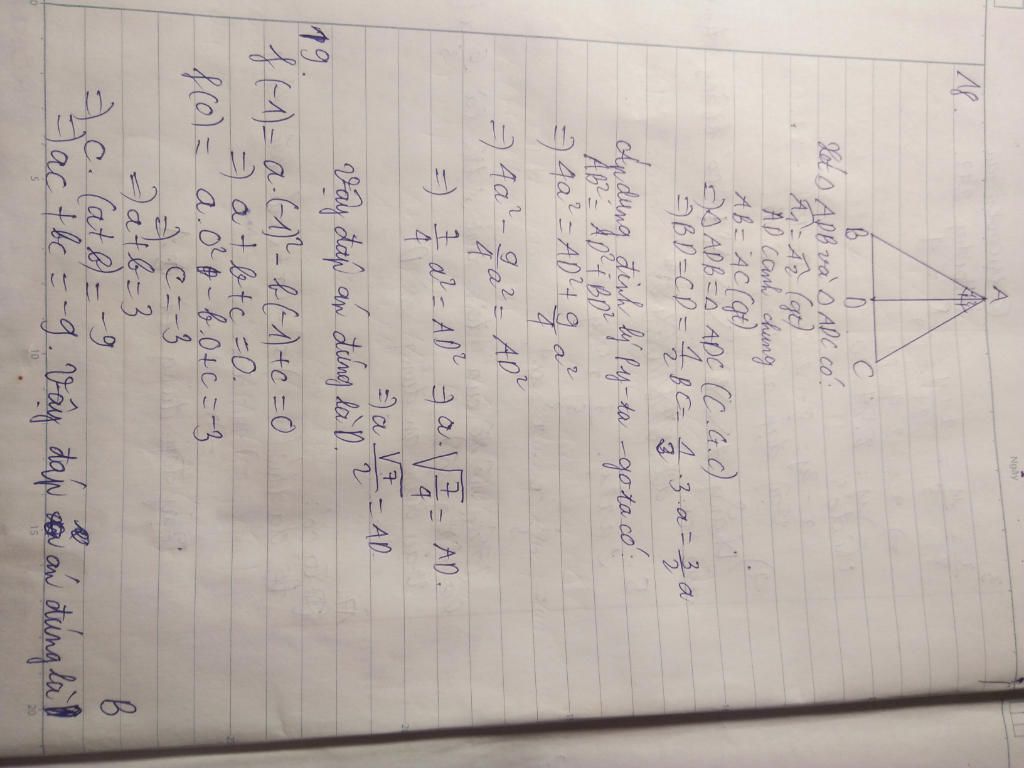 18.
A
B D C
Xét Δ ADB và Δ ADC có:
Â1 = Â2 (gt)
AD cạnh chung
AB = AC (gt)
=> Δ ADB = Δ ADC (C.G.C)
=> BD = CD = 1/2 BC = 1/2 . 3 . a = 3/2 a
Áp dụng định lý Py-ta-go ta có:
AB² = AD² + BD²
=> 4a² = AD² + 9/4 a²
=> 4a² - 9/4 a² = AD²
=> 7/4 a² = AD² => a . √7/4 = AD.
=> a √7/2 = AD
Vậy đáp án đúng là D.
19.
f(-1) = a.(-1)² - b(-1) + c = 0
=> a + b + c = 0.
f(0) = a.0² - b.0 + c = -3
=> c = -3
=> a + b = 3
=> c. (a + b) = -9
=> ac + bc = -9. Vậy đáp án đúng là B